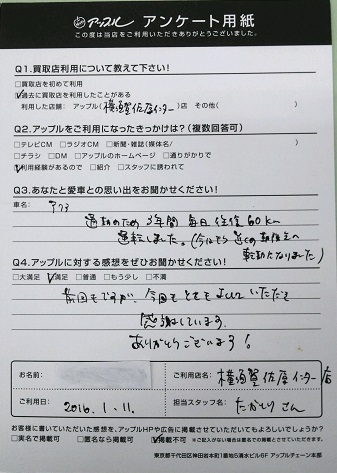 アップル アンケート用紙
この度は当店をご利用いただきありがとうございました。
Q1.買取店利用について教えて下さい!
□買取店を初めて利用
☑過去に買取店を利用したことがある
利用した店舗: アップル(横須賀佐原インター)店 その他( )
Q2.アップルをご利用になったきっかけは?(複数回答可)
□テレビCM □ラジオCM □新聞・雑誌(媒体名/ )
□チラシ □DM □アップルのホームページ □通りがかりで
☑利用経験があるので □紹介 □スタッフに誘われて
Q3.あなたと愛車との思い出をお聞かせください!
車名:
通勤のため3年間毎日往復60km
運転しました。
転勤になりました)
Q4.アップルに対する感想をぜひお聞かせください!
□大満足 ☑満足 □普通 □もう少し □不満
前回もですが、今回もとてもよくしていただいて
感謝しています。
ありがとうございます!
お名前:
ご利用店名: 横須賀佐原インター店
ご利用日: 2016.1.11.
担当スタッフ名: たかとり さん
お客様に書いていただいた感想を、アップルHPや広告に掲載させていただいてもよろしいでしょうか?
□実名で掲載可 □匿名なら掲載可 ☑掲載不可 ※ご記入がない場合は匿名での掲載とさせていただきます。
東京都千代田区神田岩本町1番地5清水ビル6F アップルチェーン本部